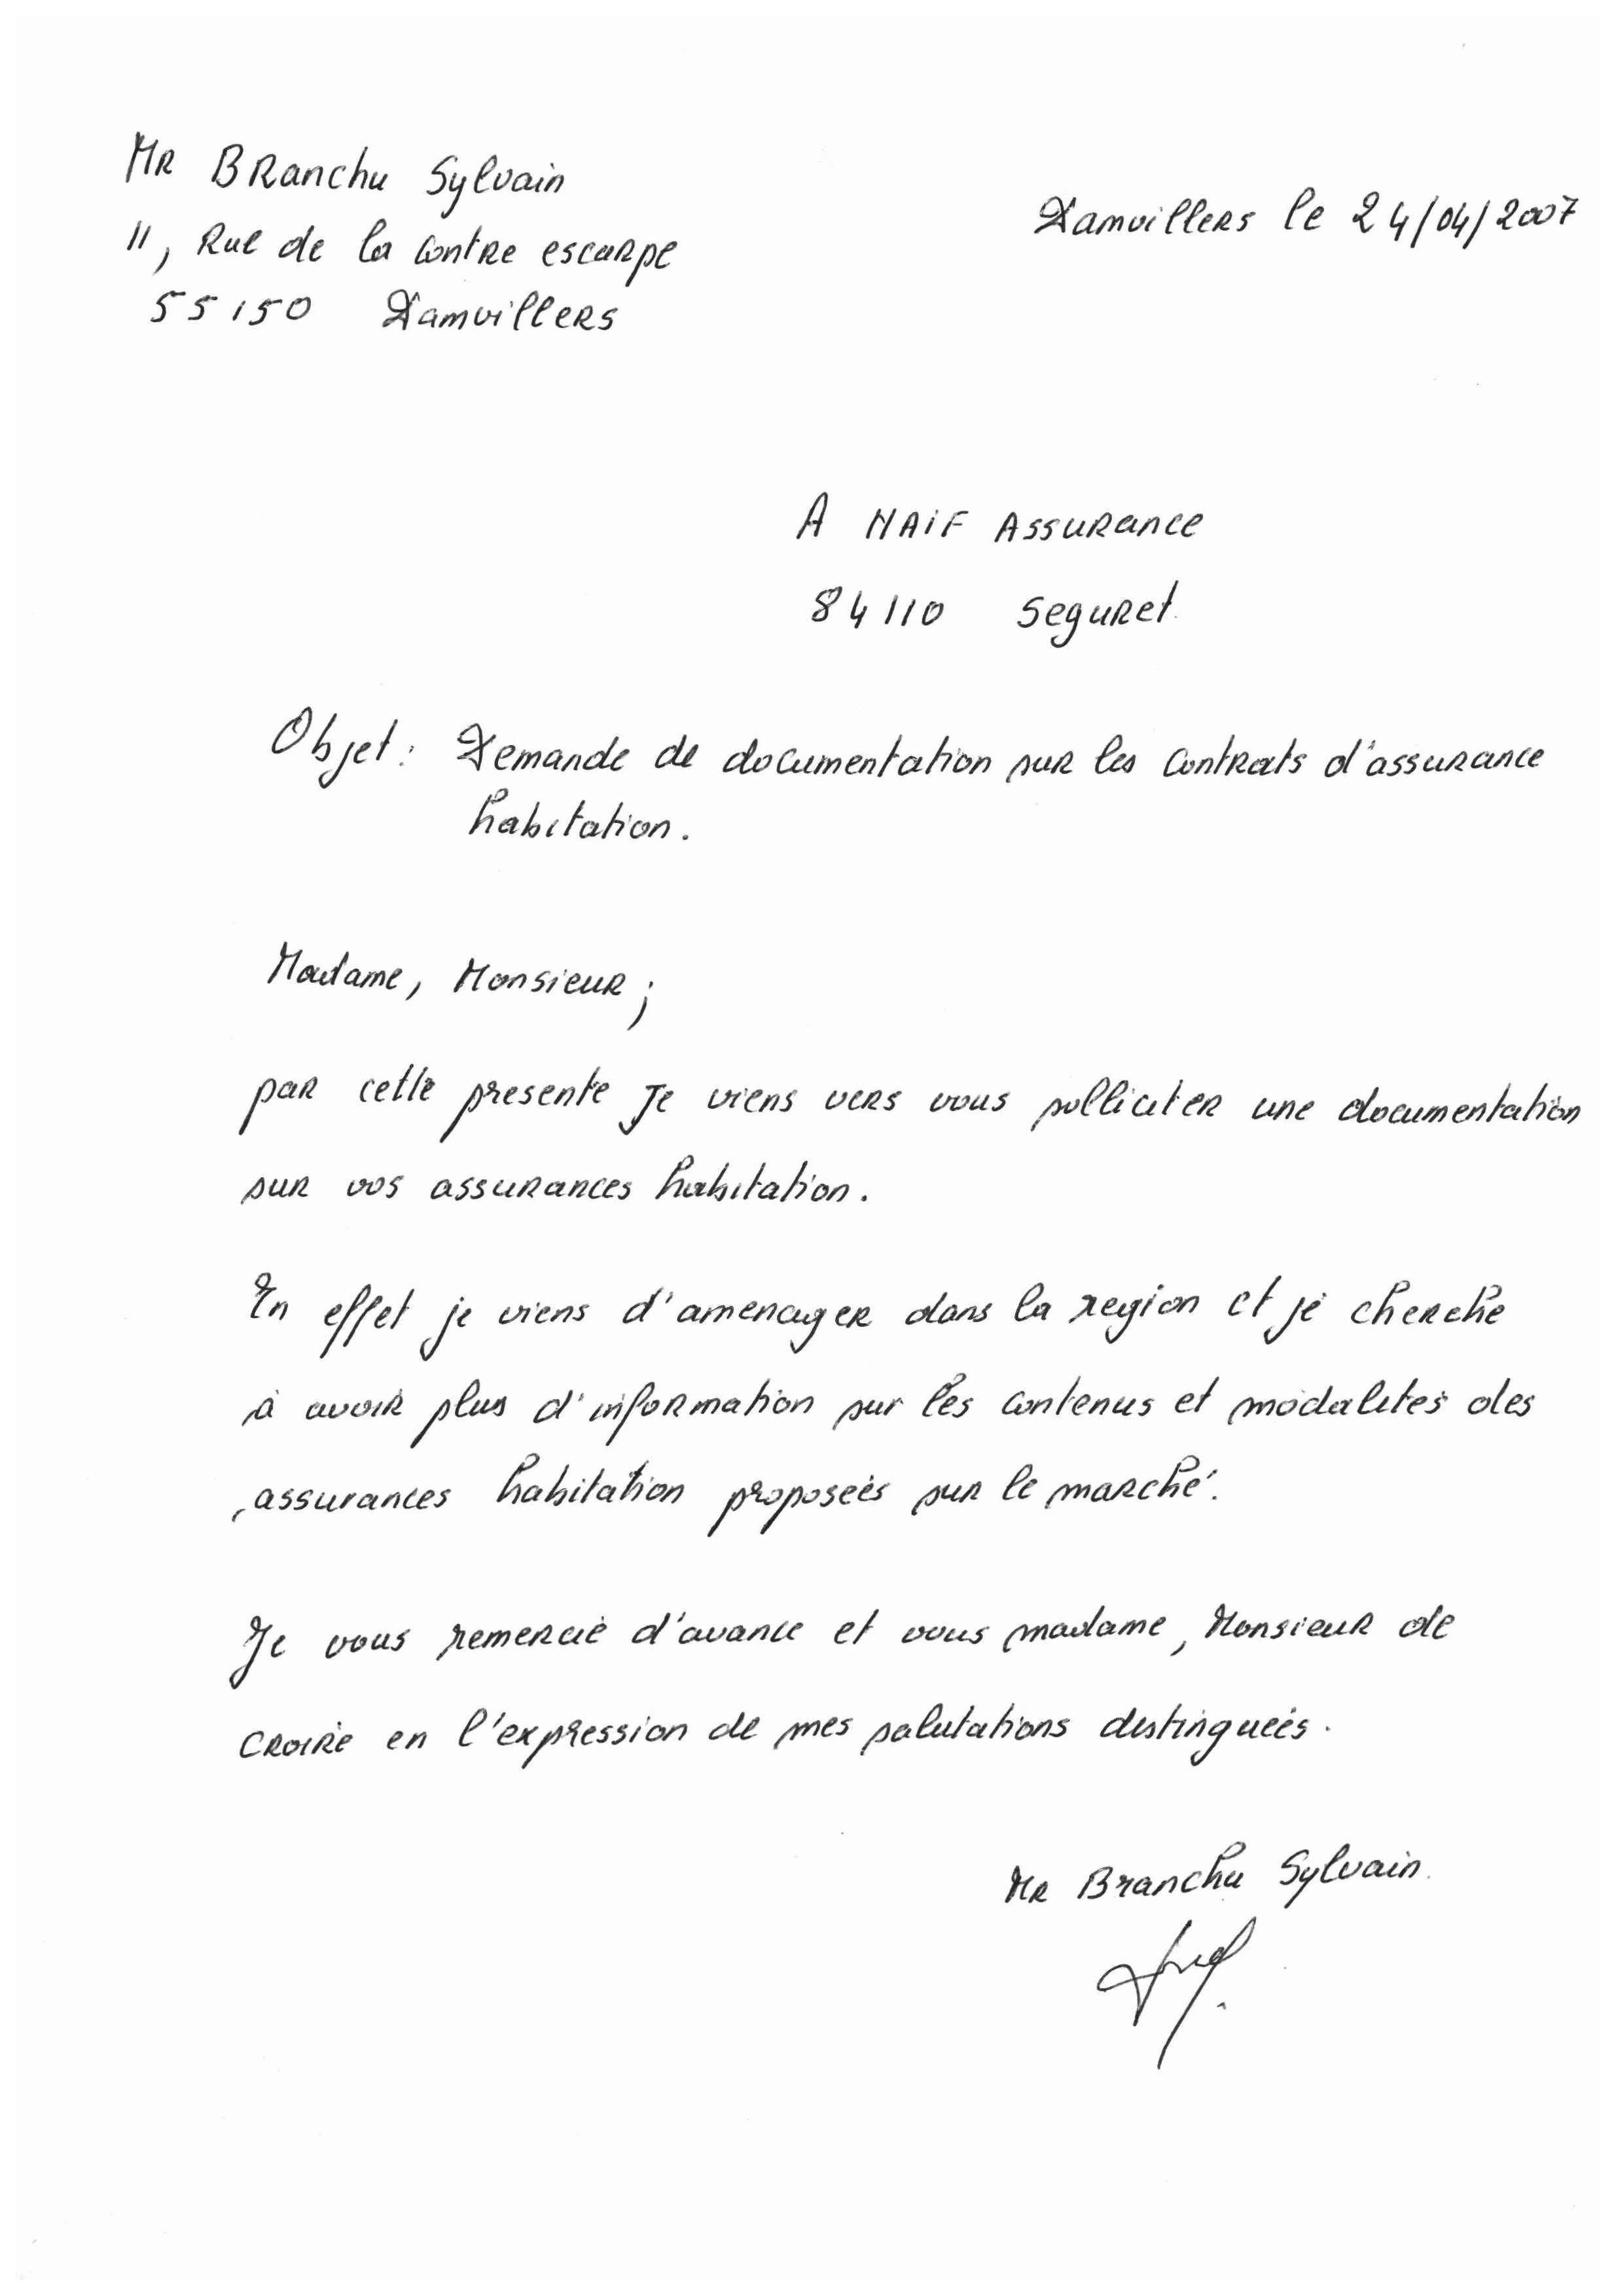 Mr Branchu Sylvain
11, Rue de la contre escarpe
55150 Damvillers
Damvillers le 24/04/2007
A MAIF Assurance
84110 Seguret
Objet : Demande de documentation sur les contrats d'assurance
habitation.
Madame, Monsieur ;
par cette presente Je viens vers vous solliciter une documentation
sur vos assurances habitation.
En effet je viens d'amenager dans la region et je cherche
à avoir plus d'information sur les contenus et modalités des
assurances habitation proposées sur le marché.
Je vous remercie d'avance et vous madame, Monsieur de
croire en l'expression de mes salutations distinguées.
Mr Branchu Sylvain.